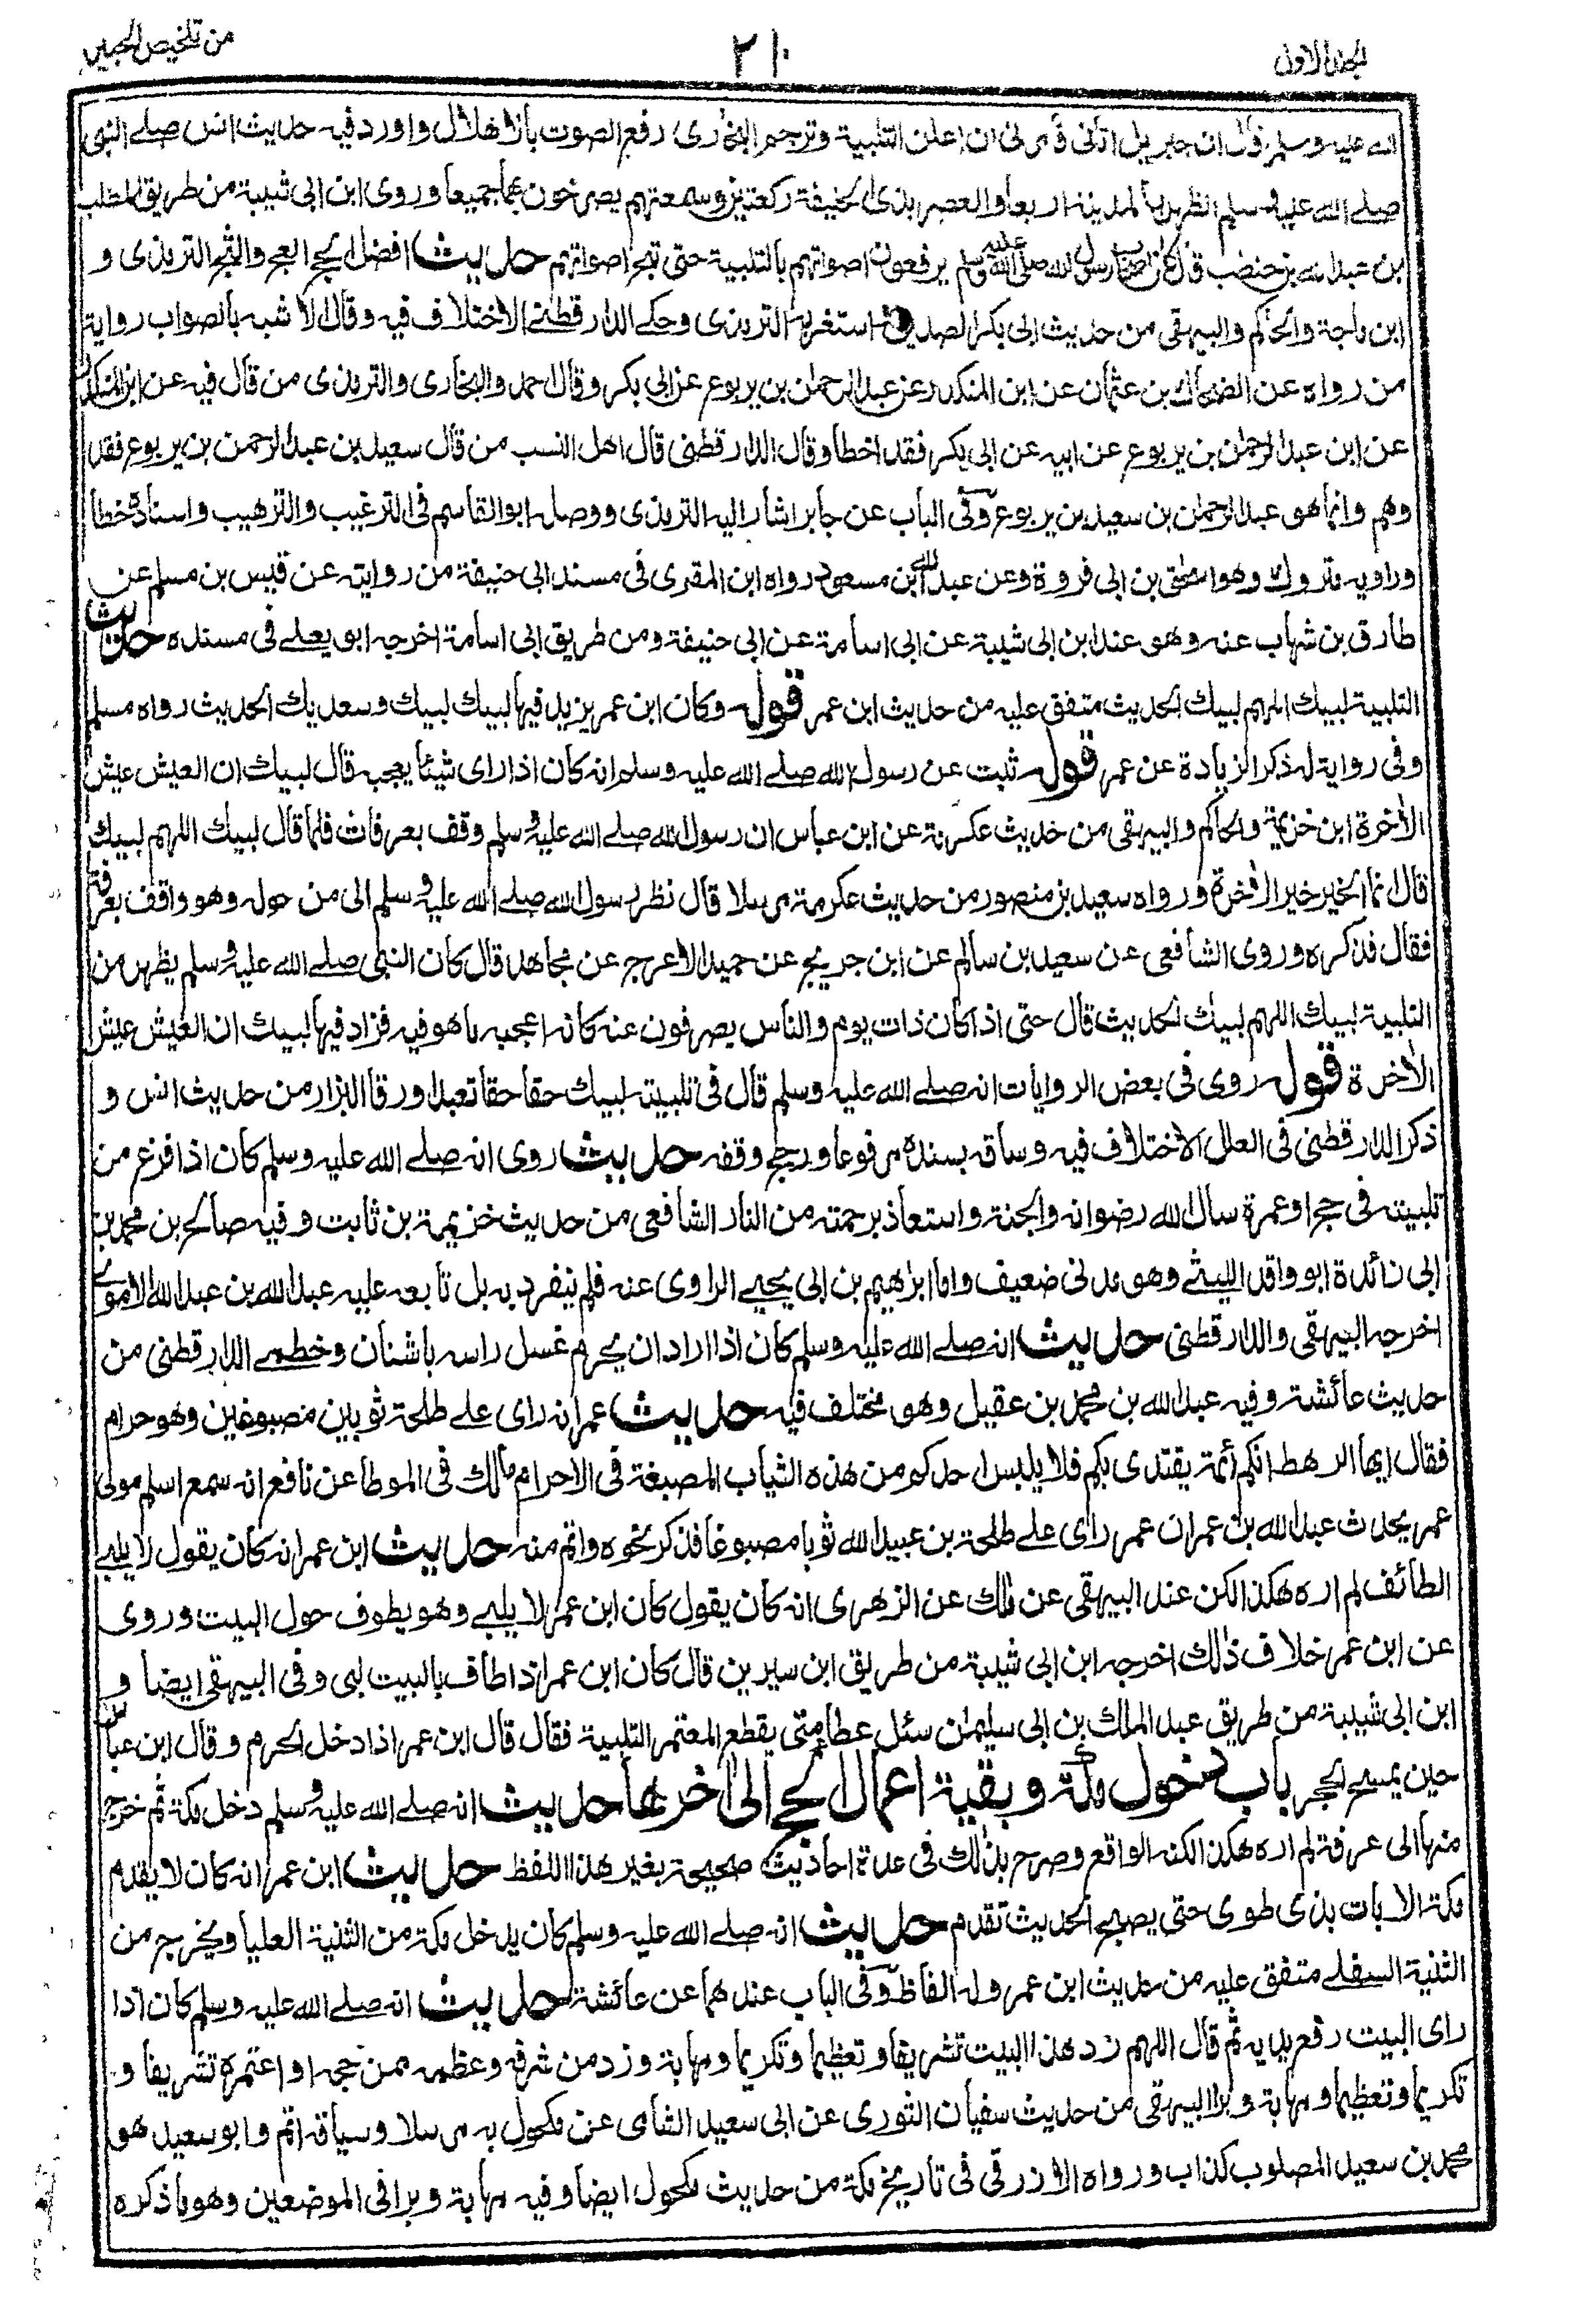 الجلد الاول
٢١٠
من تلخيص الحبير
الله عليه وسلم قال ان جبريل اتانى فأمرنى ان اعلن التلبية وترجم البخارى رفع الصوت بالاهلال واورد فيه حديث انس صلے النبى
صلے الله عليه وسلم الظهر بالمدينة اربعا والعصر بذى الحليفة ركعتين وسمعتهم يصرخون بهما جميعا وروى ابن ابى شيبة من طريق المطلب
بن عبد الله بن حنضب قال كان اصحاب رسول الله صلى الله عليه وسلم يرفعون اصواتهم بالتلبية حتى تبح اصواتهم حديث افضل الحج العج والثج الترمذى و
ابن ماجة والحاكم والبيهقى من حديث ابى بكر الصديق استغربه الترمذى وحكے الدارقطنے الاختلاف فيه وقال الاشبه بالصواب رواية
من رواه عن الضحاك بن عثمان عن ابن المنكدر عن عبد الرحمن بن يربوع عن ابى بكر وقال احمد والبخارى والترمذى من قال فيه عن ابن المنكدر
عن ابن عبد الرحمن بن يربوع عن ابيه عن ابى بكر فقد اخطأ وقال الدارقطنى قال اهل النسب من قال سعيد بن عبد الرحمن بن يربوع فقد
وهم وانما هو عبد الرحمن بن سعيد بن يربوع وفى الباب عن جابر اشار اليه الترمذى ووصله ابو القاسم فى الترغيب والترهيب واسناده خطأ
وراويه متروك وهو اسحٰق بن ابى فروة وعن عبد الله ابن مسعود رواه ابن المقرى فى مسند ابى حنيفة من روايته عن قيس بن مسلم عن
طارق بن شهاب عنه وهو عند ابن ابى شيبة عن ابى اسامة عن ابى حنيفة ومن طريق ابى اسامة اخرجه ابو يعلے فى مسنده حديث
التلبية لبيك اللهم لبيك الحديث متفق عليه من حديث ابن عمر قوله وكان ابن عمر يزيد فيها لبيك لبيك وسعديك الحديث رواه مسلم
وفى رواية له ذكر الزيادة عن عمر قوله ثبت عن رسول الله صلے الله عليه وسلم انه كان اذا راى شيئا يعجبه قال لبيك ان العيش عيش
الاخرة ابن خزيمة والحاكم والبيهقى من حديث عكرمة عن ابن عباس ان رسول الله صلے الله عليه وسلم وقف بعرفات فلما قال لبيك اللهم لبيك
قال انما الخير خير الاخرة ورواه سعيد بن منصور من حديث عكرمة مرسلا قال نظر رسول الله صلے الله عليه وسلم الى من حوله وهو واقف بعرفة
فقال فذكره وروى الشافعى عن سعيد بن سالم عن ابن جريج عن حميد الاعرج عن مجاهد قال كان النبى صلے الله عليه وسلم يظهر من
التلبية لبيك اللهم لبيك الحديث قال حتى اذا كان ذات يوم والناس يصرفون عنه كانه اعجبه ما هو فيه فزاد فيها لبيك ان العيش عيش
الاخرة قوله روى فى بعض الروايات انه صلے الله عليه وسلم قال فى تلبيته لبيك حقا حقا تعبدا ورقا البزار من حديث انس و
ذكر الدارقطنى فى العلل الاختلاف فيه وساقه بسنده مرفوعا ورجح وقفه حديث روى انه صلے الله عليه وسلم كان اذا فرغ من
تلبيته فى حج او عمرة سال الله رضوانه والجنة واستعاذ برحمته من النار الشافعى من حديث خزيمة بن ثابت وفيه صالح بن محمد بن
ابى زائدة ابو واقد الليثے وهو مدنى ضعيف واما ابراهيم بن ابى يحيے الراوى عنه فلم ينفرد به بل تابعه عليه عبد الله بن عبد الله الاموى
اخرجه البيهقى والدارقطنى حديث انه صلے الله عليه وسلم كان اذا اراد ان يحرم غسل راسه باشنان وخطمے الدارقطنى من
حديث عائشة وفيه عبد الله بن محمد بن عقيل وهو مختلف فيه حديث عمر انه راى علے طلحة ثوبين مصبوغين وهو حرام
فقال ايها الرهط انكم ائمة يقتدى بكم فلا يلبس احدكم من هذه الثياب المصبغة فى الاحرام مالك فى الموطا عن نافع انه سمع اسلم مولى
عمر يحدث عبد الله بن عمر ان عمر راى علے طلحة بن عبيد الله ثوبا مصبوغا فذكر نحوه واتم منه حديث ابن عمر انه كان يقول لا يلبے
الطائف لم اره هكذا لكن عند البيهقى عن مالك عن الزهرى انه كان يقول كان ابن عمر لا يلبے وهو يطوف حول البيت وروى
عن ابن عمر خلاف ذلك اخرجه ابن ابى شيبة من طريق ابن سيرين قال كان ابن عمر اذا طاف بالبيت لبى وفى البيهقى ايضا و
ابن ابى شيبة من طريق عبد الملك بن ابى سليمن سئل عطاء متى يقطع المعتمر التلبية فقال قال ابن عمر اذا دخل الحرم وقال ابن عباس
حين يمسح الحجر باب دخول مكة وبقية اعمال الحج الى اخرها حديث انه صلے الله عليه وسلم دخل مكة ثم خرج
منها الى عرفة لم اره هكذا لكنه الواقع وصرح بذلك فى عدة احاديث صحيحة بغير هذا اللفظ حديث ابن عمر انه كان لا يقدم
مكة الا بات بذى طوى حتى يصبح الحديث تقدم حديث انه صلے الله عليه وسلم كان يدخل مكة من الثنية العليا ويخرج من
الثنية السفلے متفق عليه من حديث ابن عمر وله الفاظ وفى الباب عندهما عن عائشة حديث انه صلے الله عليه وسلم كان اذا
راى البيت رفع يديه ثم قال اللهم زد هذا البيت تشريفا وتعظيما وتكريما ومهابة وزد من شرفه وعظمه ممن حجه او اعتمره تشريفا و
تكريما وتعظيما ومهابة وبرا البيهقى من حديث سفيان الثورى عن ابى سعيد الشامى عن مكحول به مرسلا وسياقه اتم وابو سعيد هو
محمد بن سعيد المصلوب كذاب ورواه الازرقى فى تاريخ مكة من حديث مكحول ايضا وفيه مهابة وبرا فى الموضعين وهو ما ذكره